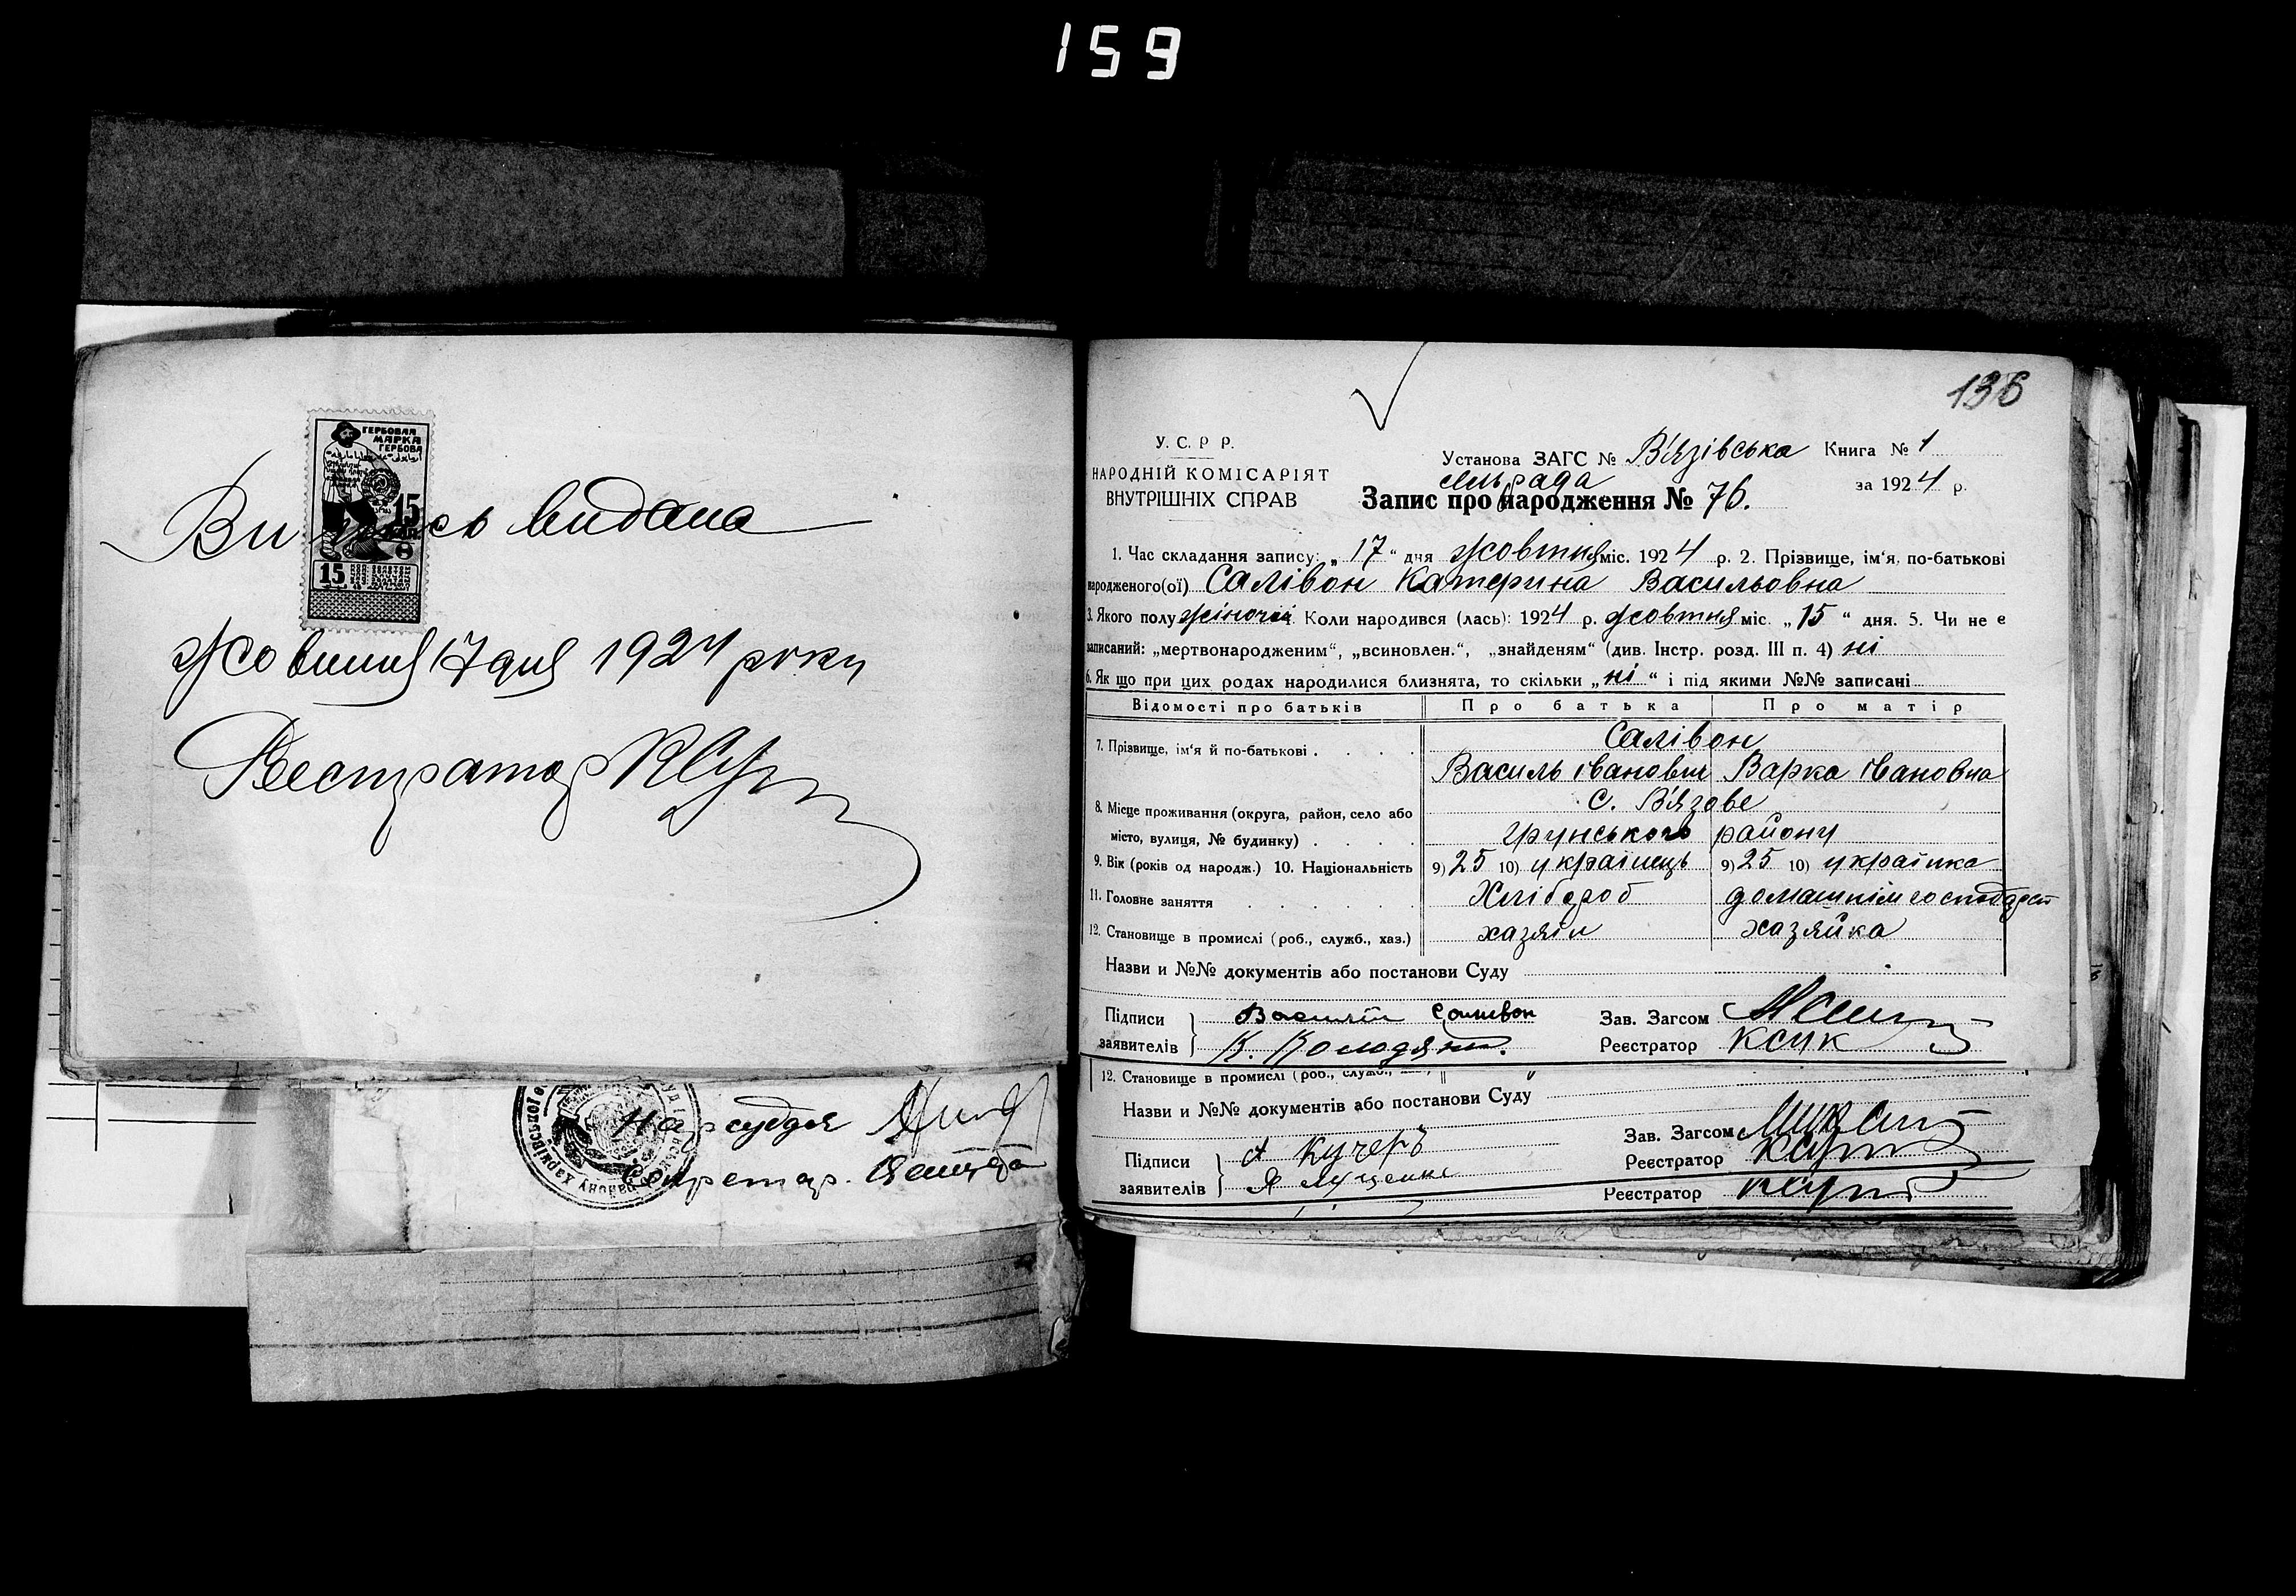 159
ГЕРБОВАЯ
МАРКА
ГЕРБОВА
15
15
Випись видана
Жовтня 17 дня 1924 року
Реєстратор
Нарсуддя
Секретар.
136
У. С. Р. Р.
НАРОДНІЙ КОМІСАРІЯТ
ВНУТРІШНІХ СПРАВ
Установа ЗАГС № В'язівська Книга № 1
сільрада
за 1924 р.
Запис про народження № 76.
1. Час складання запису: „17“ дня жовтня міс. 1924 р. 2. Прізвище, ім'я, по-батькові
народженого(ої) Салівон Катерина Васильовна
3. Якого полу жіночий Коли народився (лась): 1924 р. жовтня міс. „15“ дня. 5. Чи не є
записаний: „мертвонародженим“, „всиновлен.“, „знайденям“ (див. Інстр. розд. III п. 4) ні
6. Як що при цих родах народилися близнята, то скільки „ні“ і під якими №№ записані
Відомості про батьків Про батька Про матір
7. Прізвище, ім'я й по-батькові . . . . Салівон
Василь іванович Варка івановна
8. Місце проживання (округа, район, село або с. В'язове
місто, вулиця, № будинку) . . . . Грунського району
9. Вік (років од народж.) 10. Національність 9) 25 10) українець 9) 25 10) українка
11. Головне заняття . . . . . Хлібороб домашнім господарст
12. Становище в промислі (роб., служб., хаз.) хазяїн хазяйка
Назви и №№ документів або постанови Суду
Підписи Василій Саливон Зав. Загсом
заявителів К. Колодяж. Реєстратор
12. Становище в промислі (роб., служб.,
Назви и №№ документів або постанови Суду
Зав. Загсом
Підписи А Кучеръ Реєстратор
заявителів Я Луценко
Реєстратор